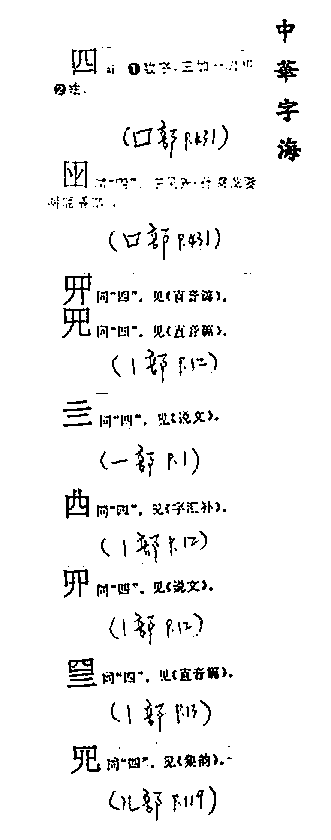 中華字海
四 ❶数字
❷姓。
(口部 P.431)
同“四”。
(口部 P.431)
同“四”。见《直音篇》。
同“四”。见《直音篇》。
(丨部 P.12)
亖 同“四”。见《说文》。
(一部 P.1)
同“四”。见《字汇补》。
(丨部 P.12)
同“四”。见《说文》。
(丨部 P.12)
同“四”。见《直音篇》。
(丨部 P.13)
同“四”。见《集韵》。
(儿部 P.119)